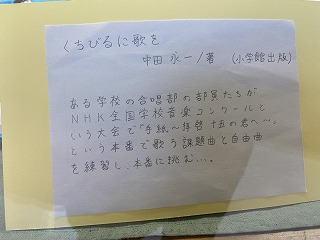 くちびるに歌を
中田永一/著 (小学館出版)
ある学校の合唱部の部員たちが
NHK全国学校音楽コンクールと
いう大会で「手紙〜拝啓十五の君へ〜」
という本番で歌う課題曲と自由曲
を練習し、本番に挑む…。